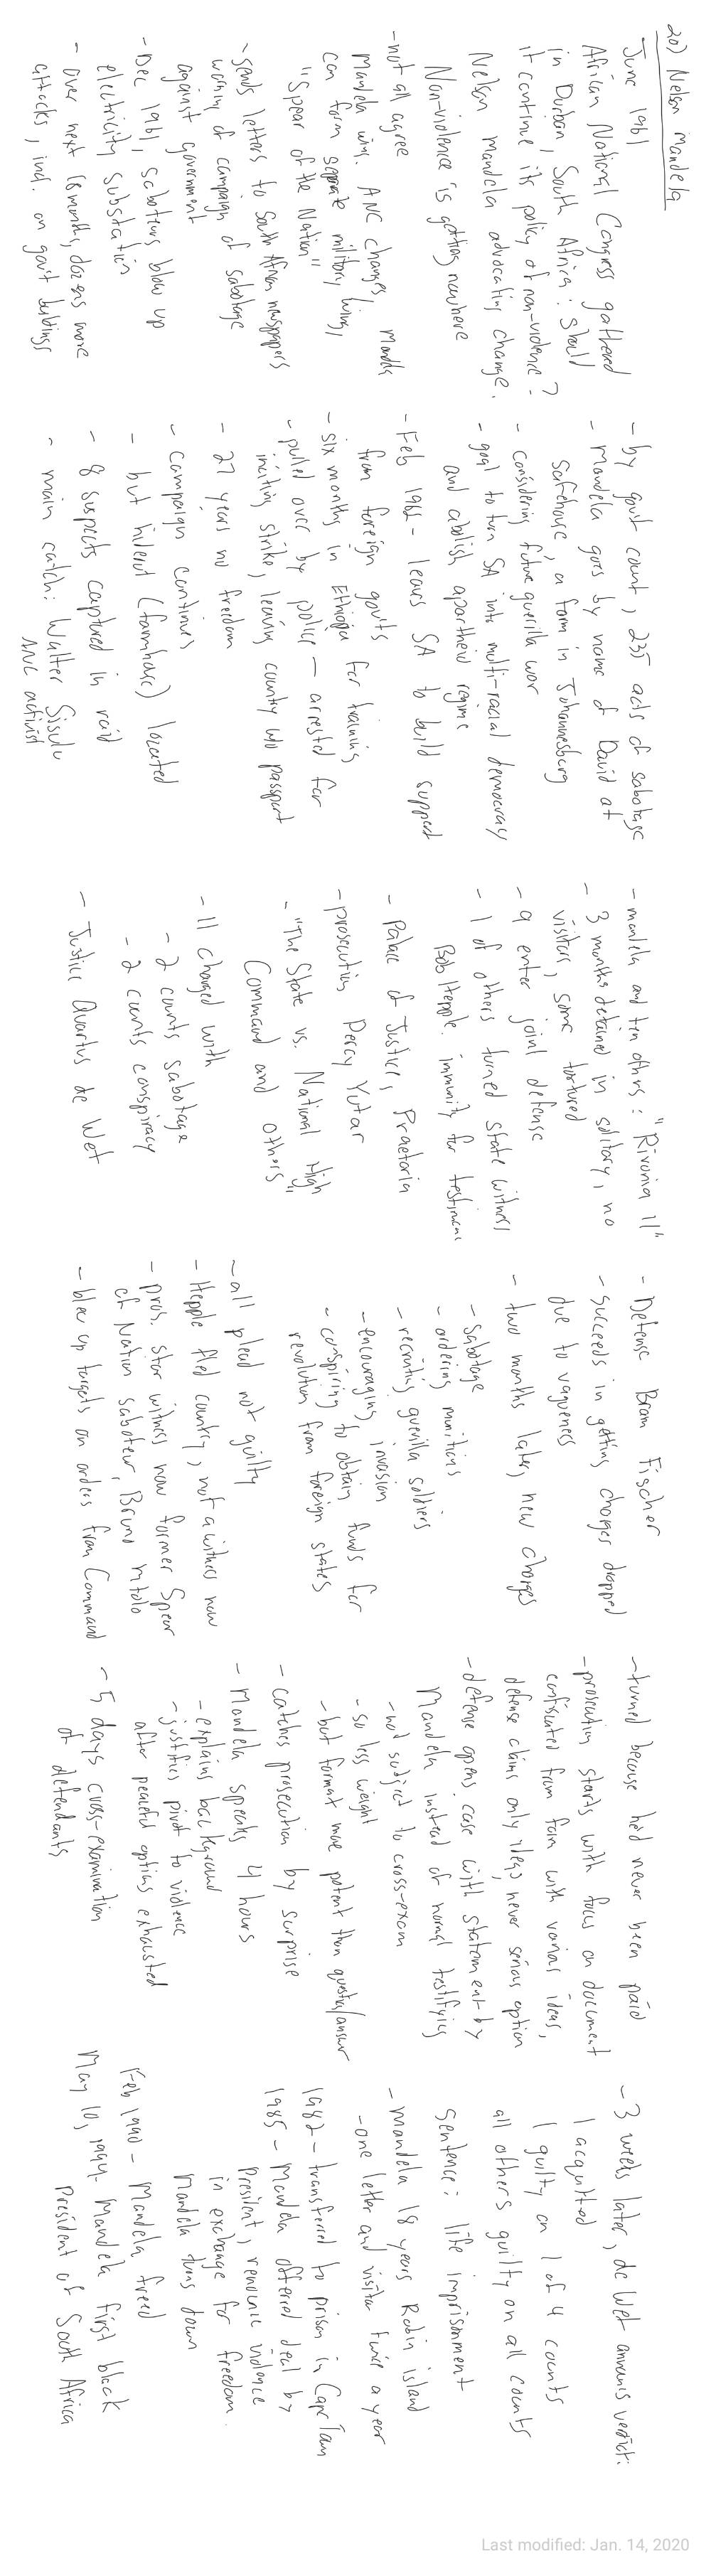 20) Nelson Mandela
June 1961
African National Congress gathered
in Durban, South Africa: should
it continue its policy of non-violence?
Nelson Mandela advocating change.
Non-violence is getting nowhere
- not all agree
Mandela wins. ANC changes, Mandela
can form separate military wing,
"Spear of the Nation"
- sends letters to South African newspapers
warning of campaign of sabotage
against government
- Dec 1961, saboteurs blow up
electricity substation
- over next 18 months, dozens more
attacks, incl. on gov't buildings
- by gov't count, 235 acts of sabotage
- Mandela goes by name of David at
safehouse, a farm in Johannesberg
- considering future guerilla war
- goal to turn SA into multi-racial democracy
and abolish apartheid regime
- Feb 1962 - leaves SA to build support
from foreign gov'ts
- six months in Ethiopia for training
- pulled over by police - arrested for
inciting strike, leaving country w/o passport
- 27 years no freedom
- campaign continues
- but hideout (farmhouse) located
- 8 suspects captured in raid
- main catch: Walter Sisulu
ANC activist
- mandela and ten others: "Rivonia 11"
- 3 months detained in solitary, no
visitors, some tortured
- 9 enter joint defense
- 1 of others turned state witness
Bob Hepple. immunity for testimony
- Palace of Justice, Praetoria
- prosecution Percy Yutar
- "The State vs. National High
Command and others"
- 11 charged with
- 2 counts sabotage
- 2 counts conspiracy
- Justice Quartus de Wet
- Defense Bram Fischer
- succeeds in getting charges dropped
due to vagueness
- two months later, new charges
- sabotage
- ordering munitions
- recruiting guerilla soldiers
- encouraging invasion
- conspiring to obtain funds for
revolution from foreign states
- all plead not guilty
- Hepple fled country, not a witness now
- pros. star witness now former Spear
of Nation saboteur, Bruno Mtolo
- blew up targets on orders from Command
- turned because he'd never been paid
- prosecution starts with focus on document
confiscated from farm with various ideas,
defense claims only ideas, never serious option
- defense opens case with statement by
Mandela instead of normal testifying
- not subject to cross-exam
- so less weight
- but format more potent than question/answer
- catches prosecution by surprise
- Mandela speaks 4 hours
- explains background
- justifies pivot to violence
after peaceful options exhausted
- 5 days cross-examination
of defendants
- 3 weeks later, de Wet announces verdict:
1 acquitted
1 guilty on 1 of 4 counts
all others guilty on all counts
Sentence: life imprisonment
- mandela 18 years Robin island
- one letter and visitor twice a year
1982 - transferred to prison in Cape Town
1985 - Mandela offered deal by
President, renounce violence
in exchange for freedom.
Mandela turns down
Feb 1990 - Mandela freed
May 10, 1994 - Mandela first black
President of South Africa
Last modified: Jan. 14, 2020